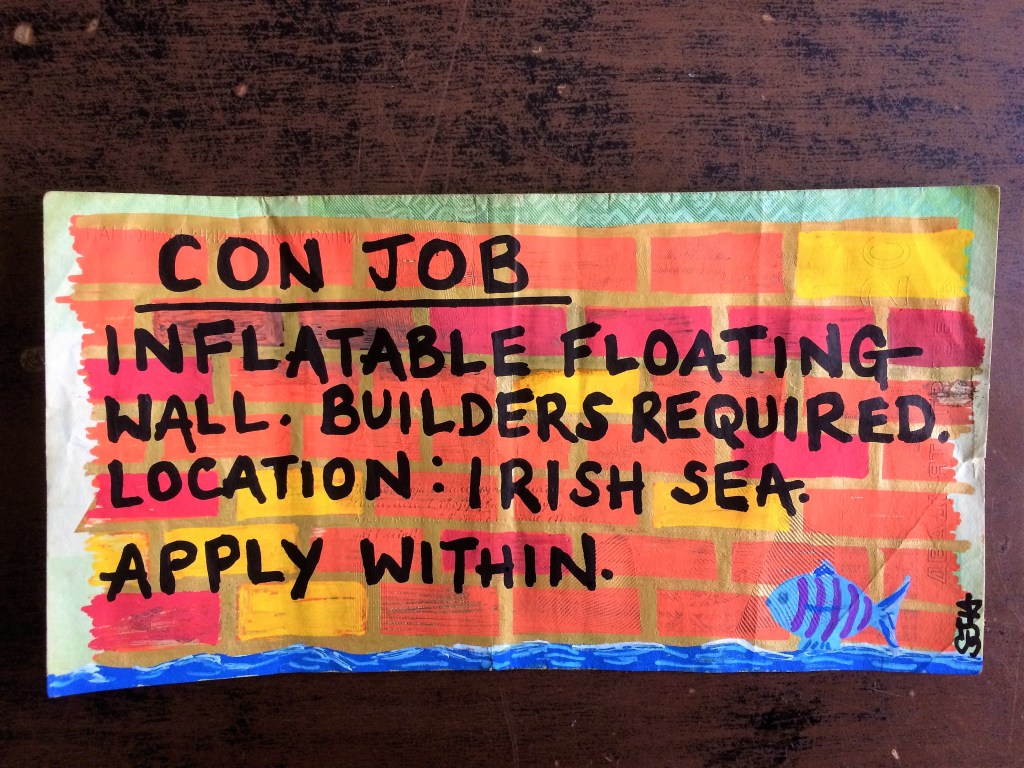 CON JOB
INFLATABLE FLOATING
WALL. BUILDERS REQUIRED.
LOCATION: IRISH SEA.
APPLY WITHIN.